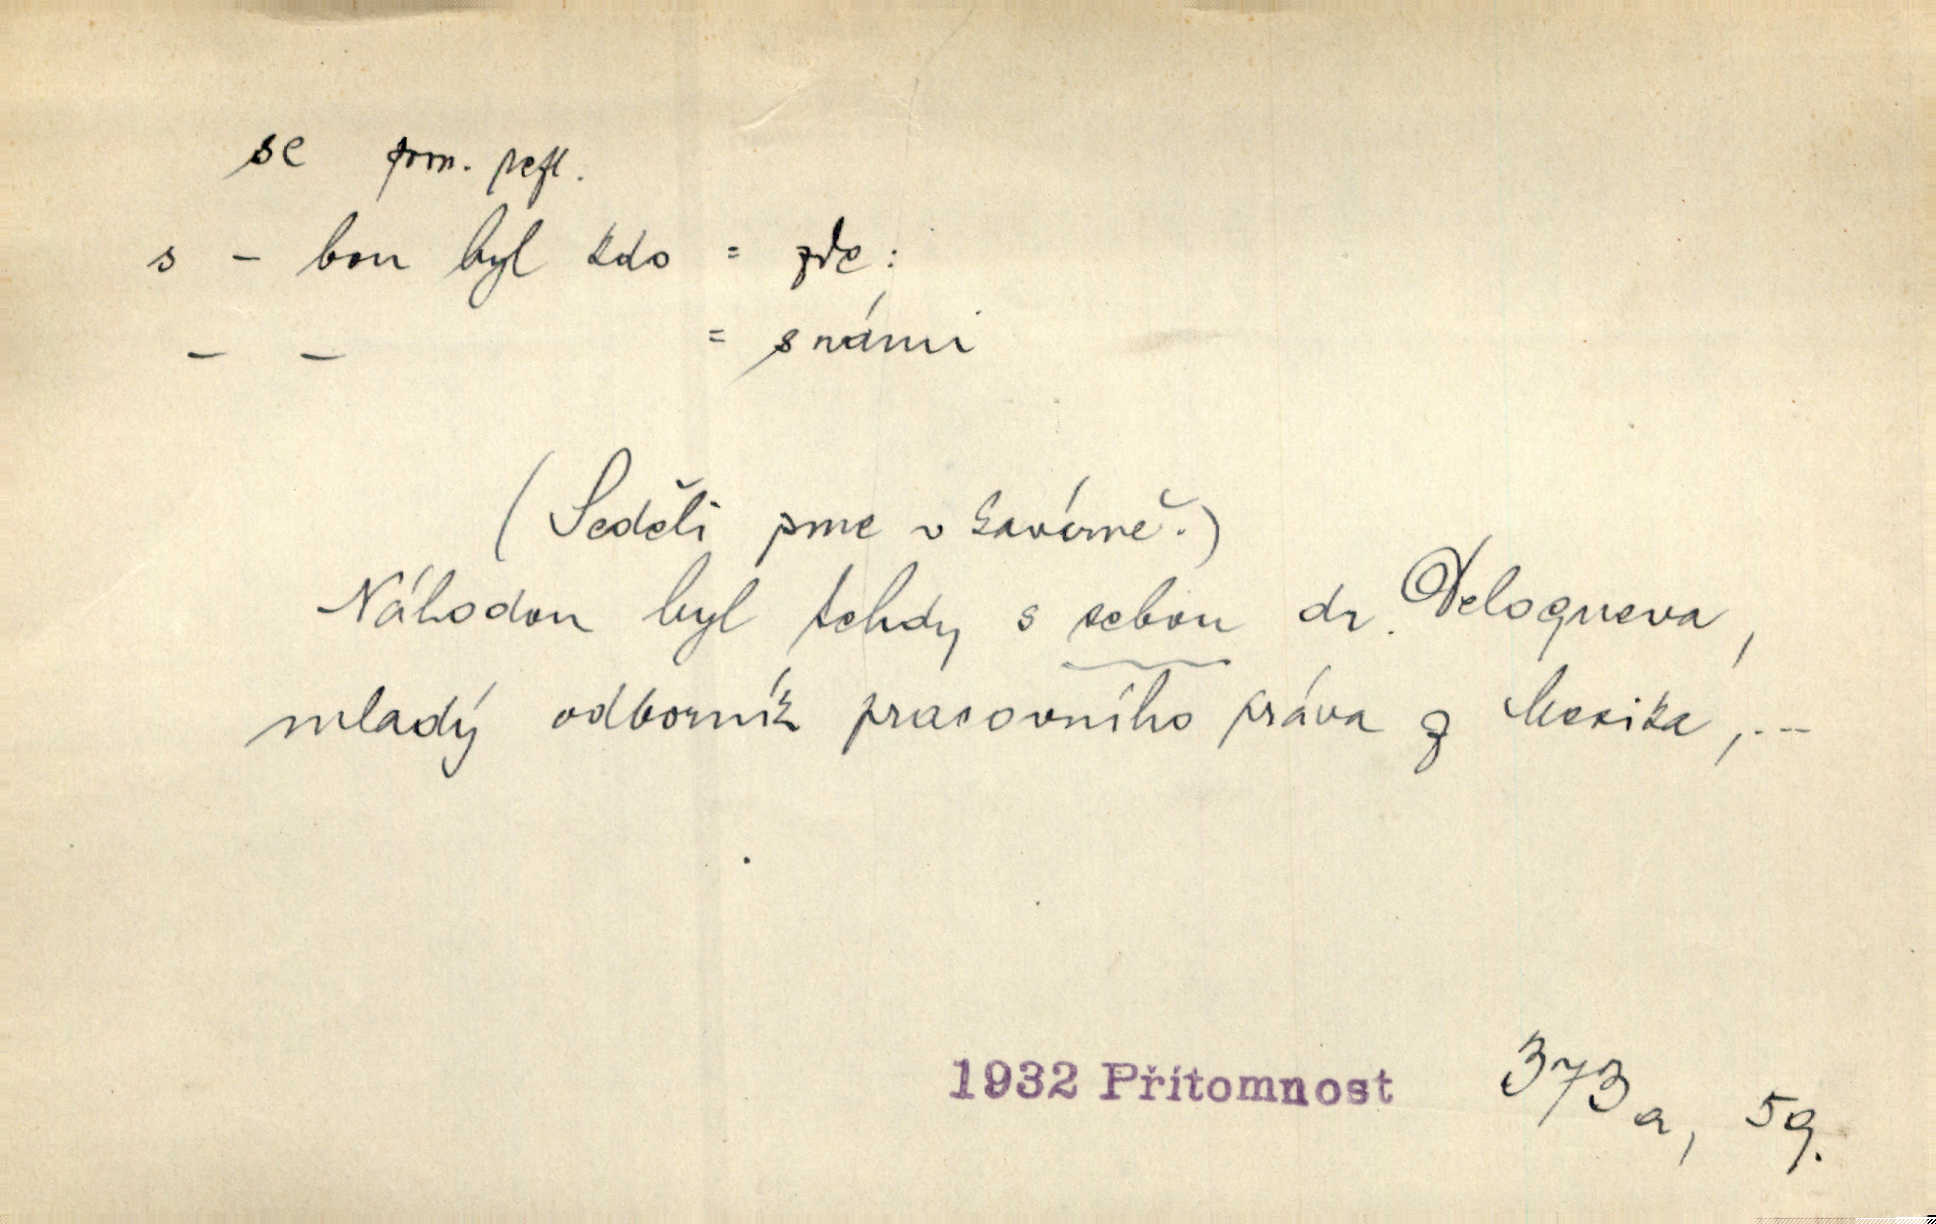 se pron. refl.
s - bou byl kdo = zde:
- - = s námi
(Seděli jsme v kavárně.)
Náhodou byl tehdy s sebou dr. Delogueva,
mladý odborník pracovního práva z Mexika,...
1932 Přítomnost 373a, 59.